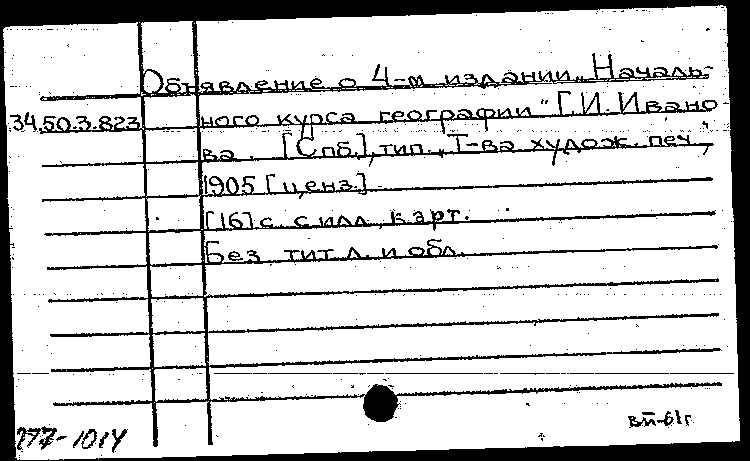 Объявление о 4-м издании „Началь-
34.50.3.823 ного курса географии" Г.И. Ивано
ва. [Спб.], тип. Т-ва худож. печ.,
1905 [ценз.]
[16] с. с илл., карт.
Без тит. л. и обл.
277-1014
вп-61г